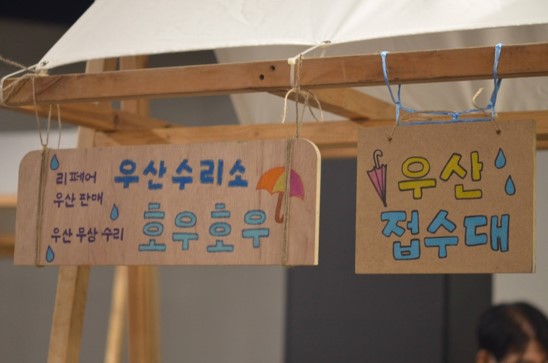 리페어
우산 판매
우산 무상 수리
우산수리소
호우호우
우산
접수대